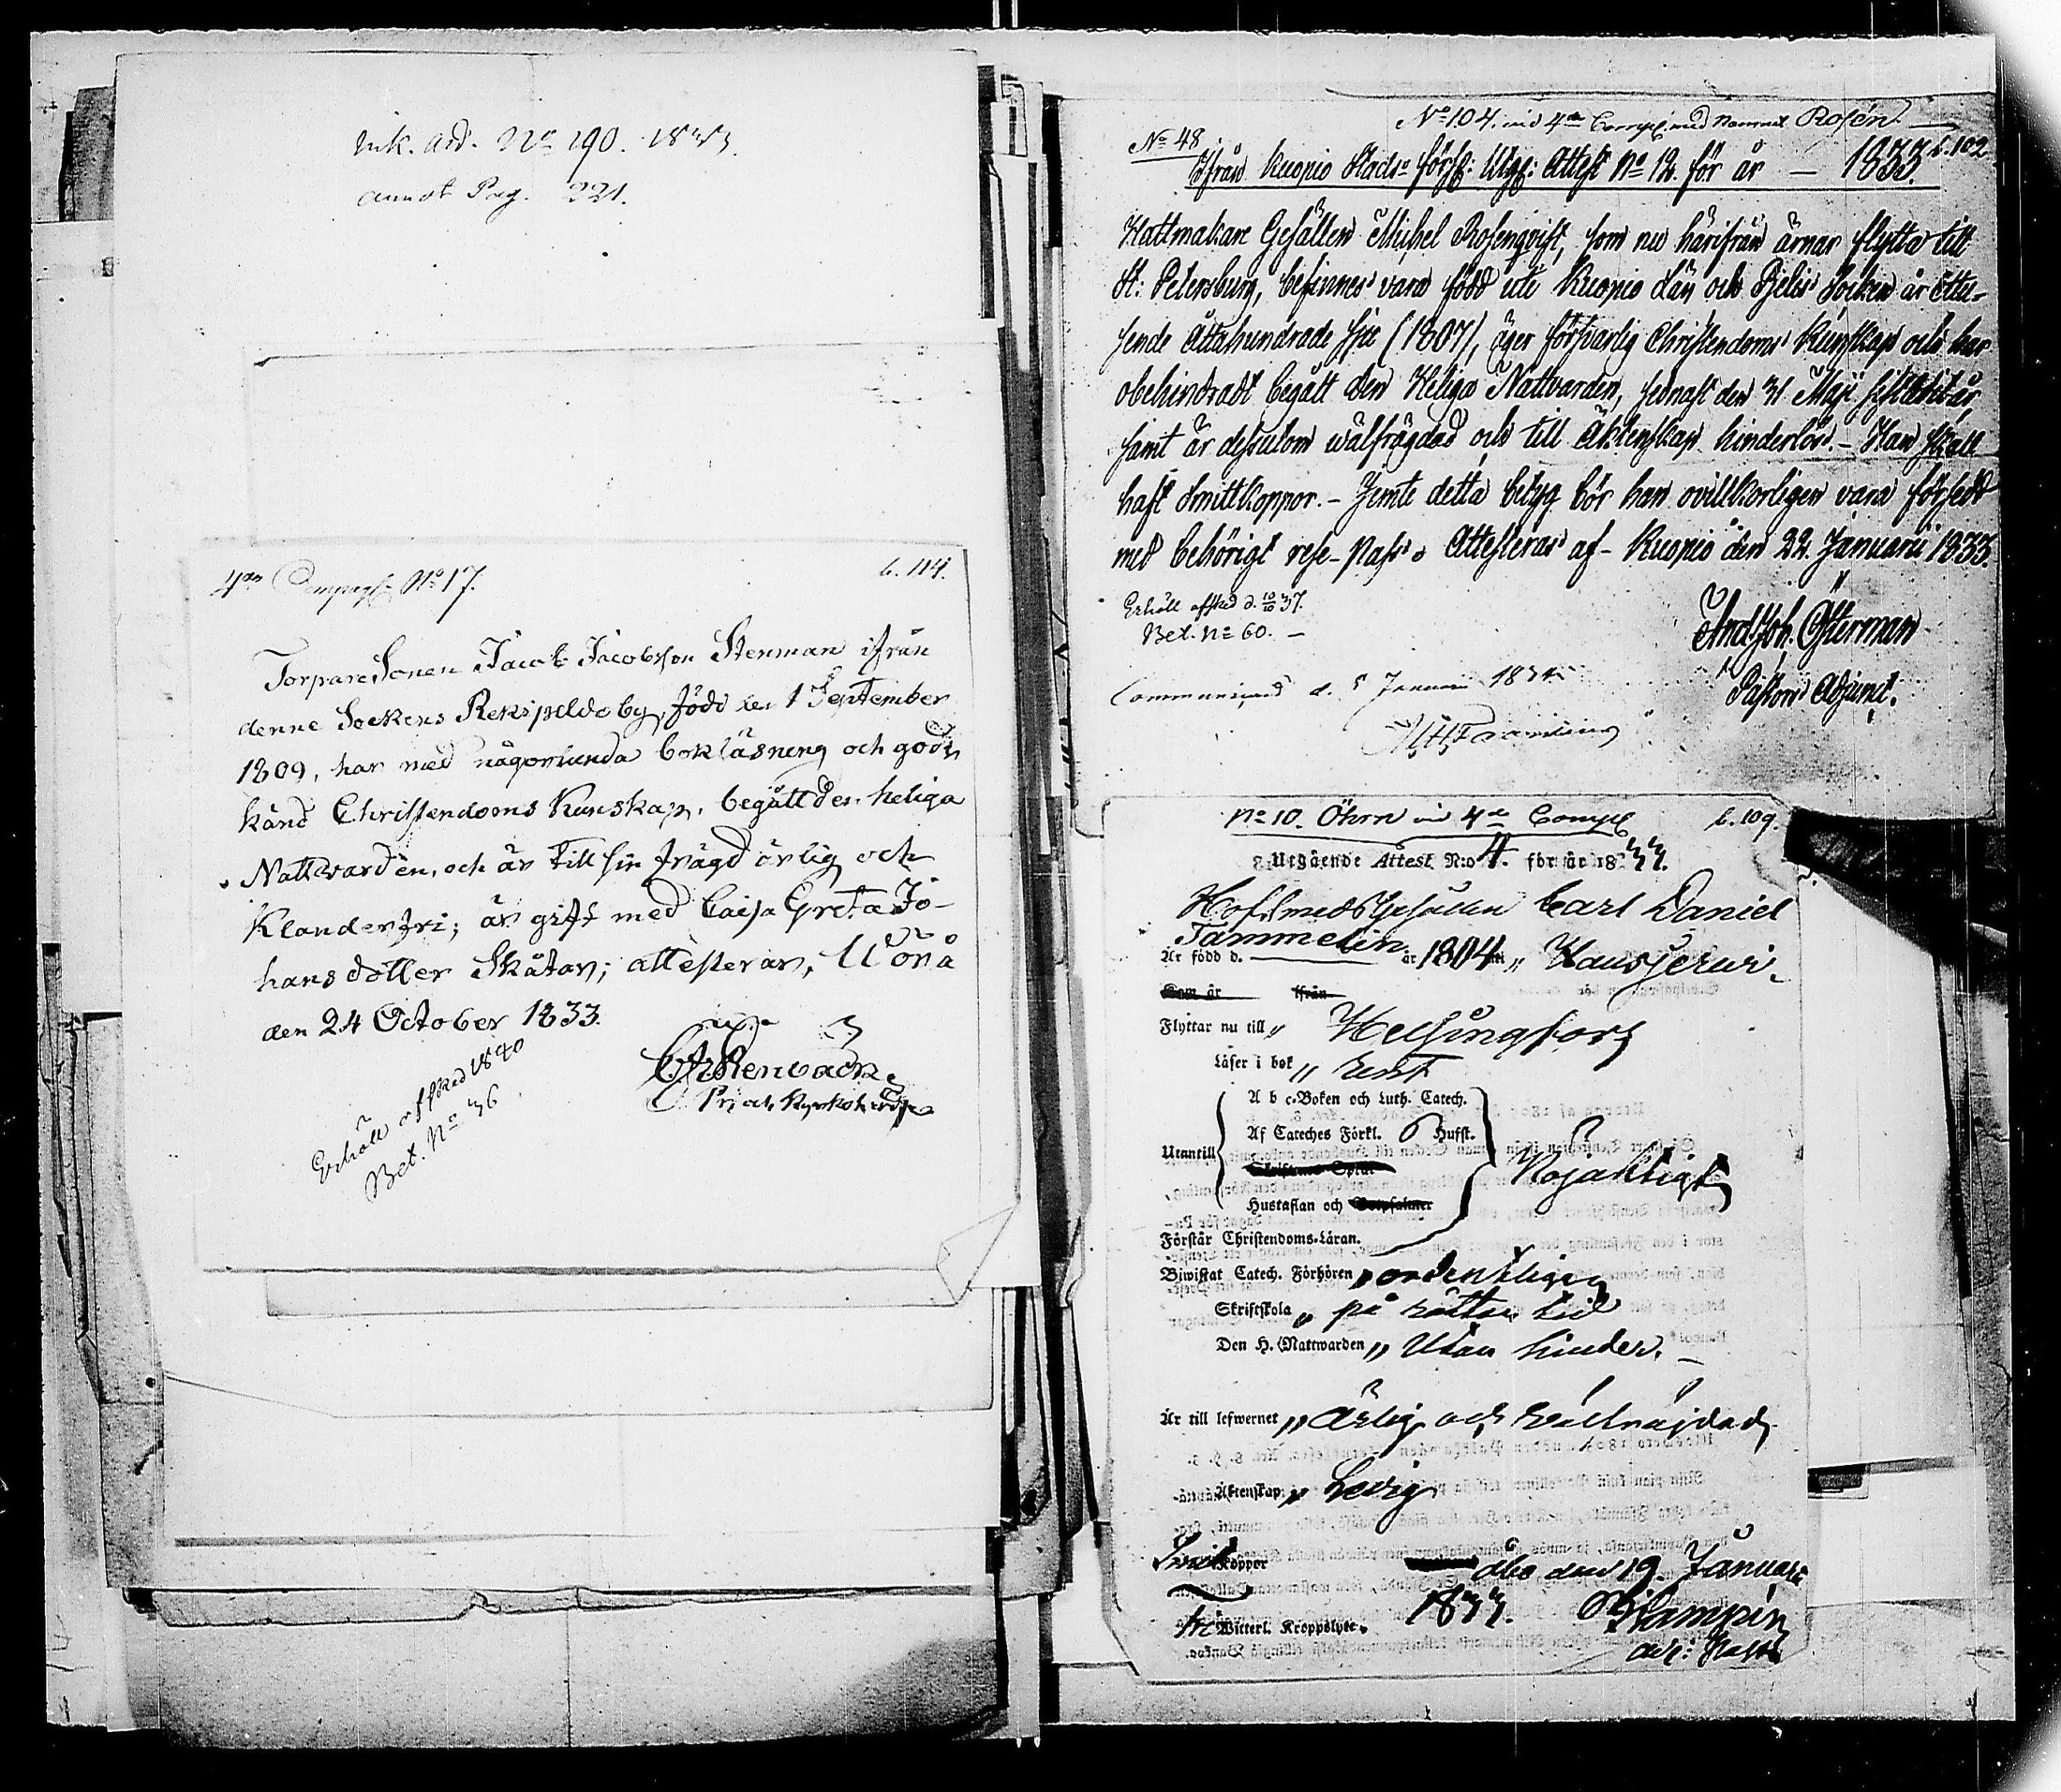 Ink. Att. No 190. 1833.
annot Pag. 221.
4de Compagn: No 17.
b. 114.
Torpare Sonen Jacob Jacobsson Stenman ifrån
denne Sockens Rekipeldo by, född den 1 September
1809, har med någorlunda bokläsning och god-
känd Christendoms Kunskap, begått den heliga
Nattvarden, och är till sin frägd ärlig och
Klanderfri; är gift med Caisa Greta Jo-
hans dotter Skåtar; attesterar, Wörå
den 24 October 1833.
Erhöll afsked 1840
Bet. No 36
No 104. vid 4de Comp: med namnet Rosén.
No 48
b. 102.
Ifrån Kuopio Stads förs: Utg: Attest No 12. för år — 1833.
Hattmakare Gesällen Michel Rosenqvist, som nu härifrån ärnar flytta till
St: Petersburg, befinnes vara född uti Kuopio Län och Pjelis Socken år ettu-
sende åttahundrade sju (1807), äger försvarlig Christendoms Kunskap och har
obehindradt begått den Heliga Nattvarden, sednast den 31 Maji sistledit år,
samt är dessutom wälfrägdad och till Äktenskap hinderlös. – Han skall
haft Smittkoppor. – Jemte detta betyg bör han ovillkorligen vara försedd
med behörigt rese-pass. Attesteras af – Kuopio den 22. Januarii 1833.
Erhöll afsked d. 10/10 37.
Bet. No 60. –
And. Joh. Österman
Pastors Adjunct.
Communicerad d. 5 Januari 1834
No 10. Öhrn vid 4de Comp:
b. 109.
Utgående Attest N:o 4. för år 1833.
Hofsmeds Gesällen Carl Daniel
Tammelin
Är född d. år 1804 i Hausjerwi
Kom år ifrån
Flyttar nu till Helsingfors
Läser i bok rent
A b c-Boken och Luth. Catech.
Af Cateches Förkl. 6 Hufst.
Utantill
Nöjaktigt
Hustaflan och
Förstår Christendoms-Läran.
Biwistat Catech. Förhören ordentligen
Skriftskola på rättan tid
Den H. Nattwarden Utan hinder. –
Är till lefwernet ärlig och
Äktenskap Ledig
koppor
Åbo den 19. Januari
1833.
Witterl. Kroppslyte.